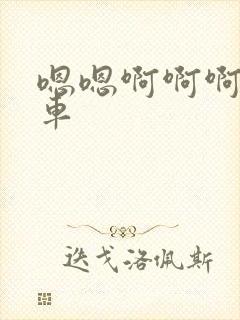 嗯嗯啊啊啊
车
迭戈洛佩斯